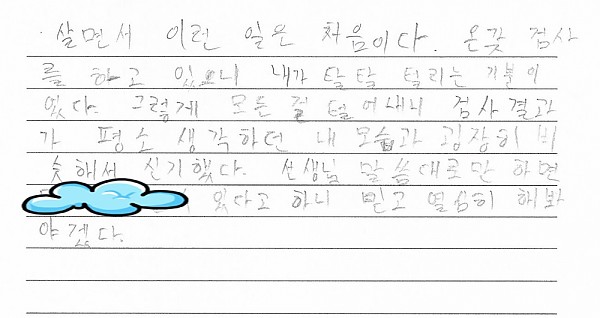 · 살면서 이런 일은 처음이다. 온갖 검사
를 하고 있으니 내가 탈탈 털리는 기분이
었다. 그렇게 모든 걸 털어내니 검사 결과
가 평소 생각하던 내 모습과 굉장히 비
슷해서 신기했다. 선생님 말씀대로만 하면
있다고 하니 믿고 열심히 해봐
야겠다.